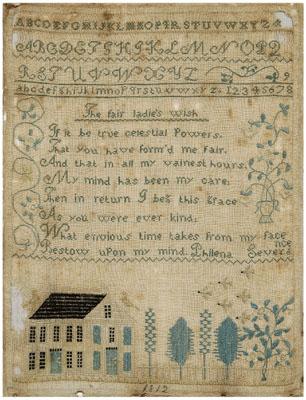 ABCDEFGHIJKLMNOPQRSTUVWXYZ&
ABCDEFGHIJKLMNOPQ
RSTUVWXYZ
abcdefghijklmnopqrstuvwxyz 12345678
The fair ladie's wish
If it be true celestial Powers.
That you have form'd me fair.
And that in all my vainest hours.
My mind has been my care:
Then in return I beg this grace
As you were ever kind;
What envious time takes from my face
Bestow upon my mind. Philena Severence
1812